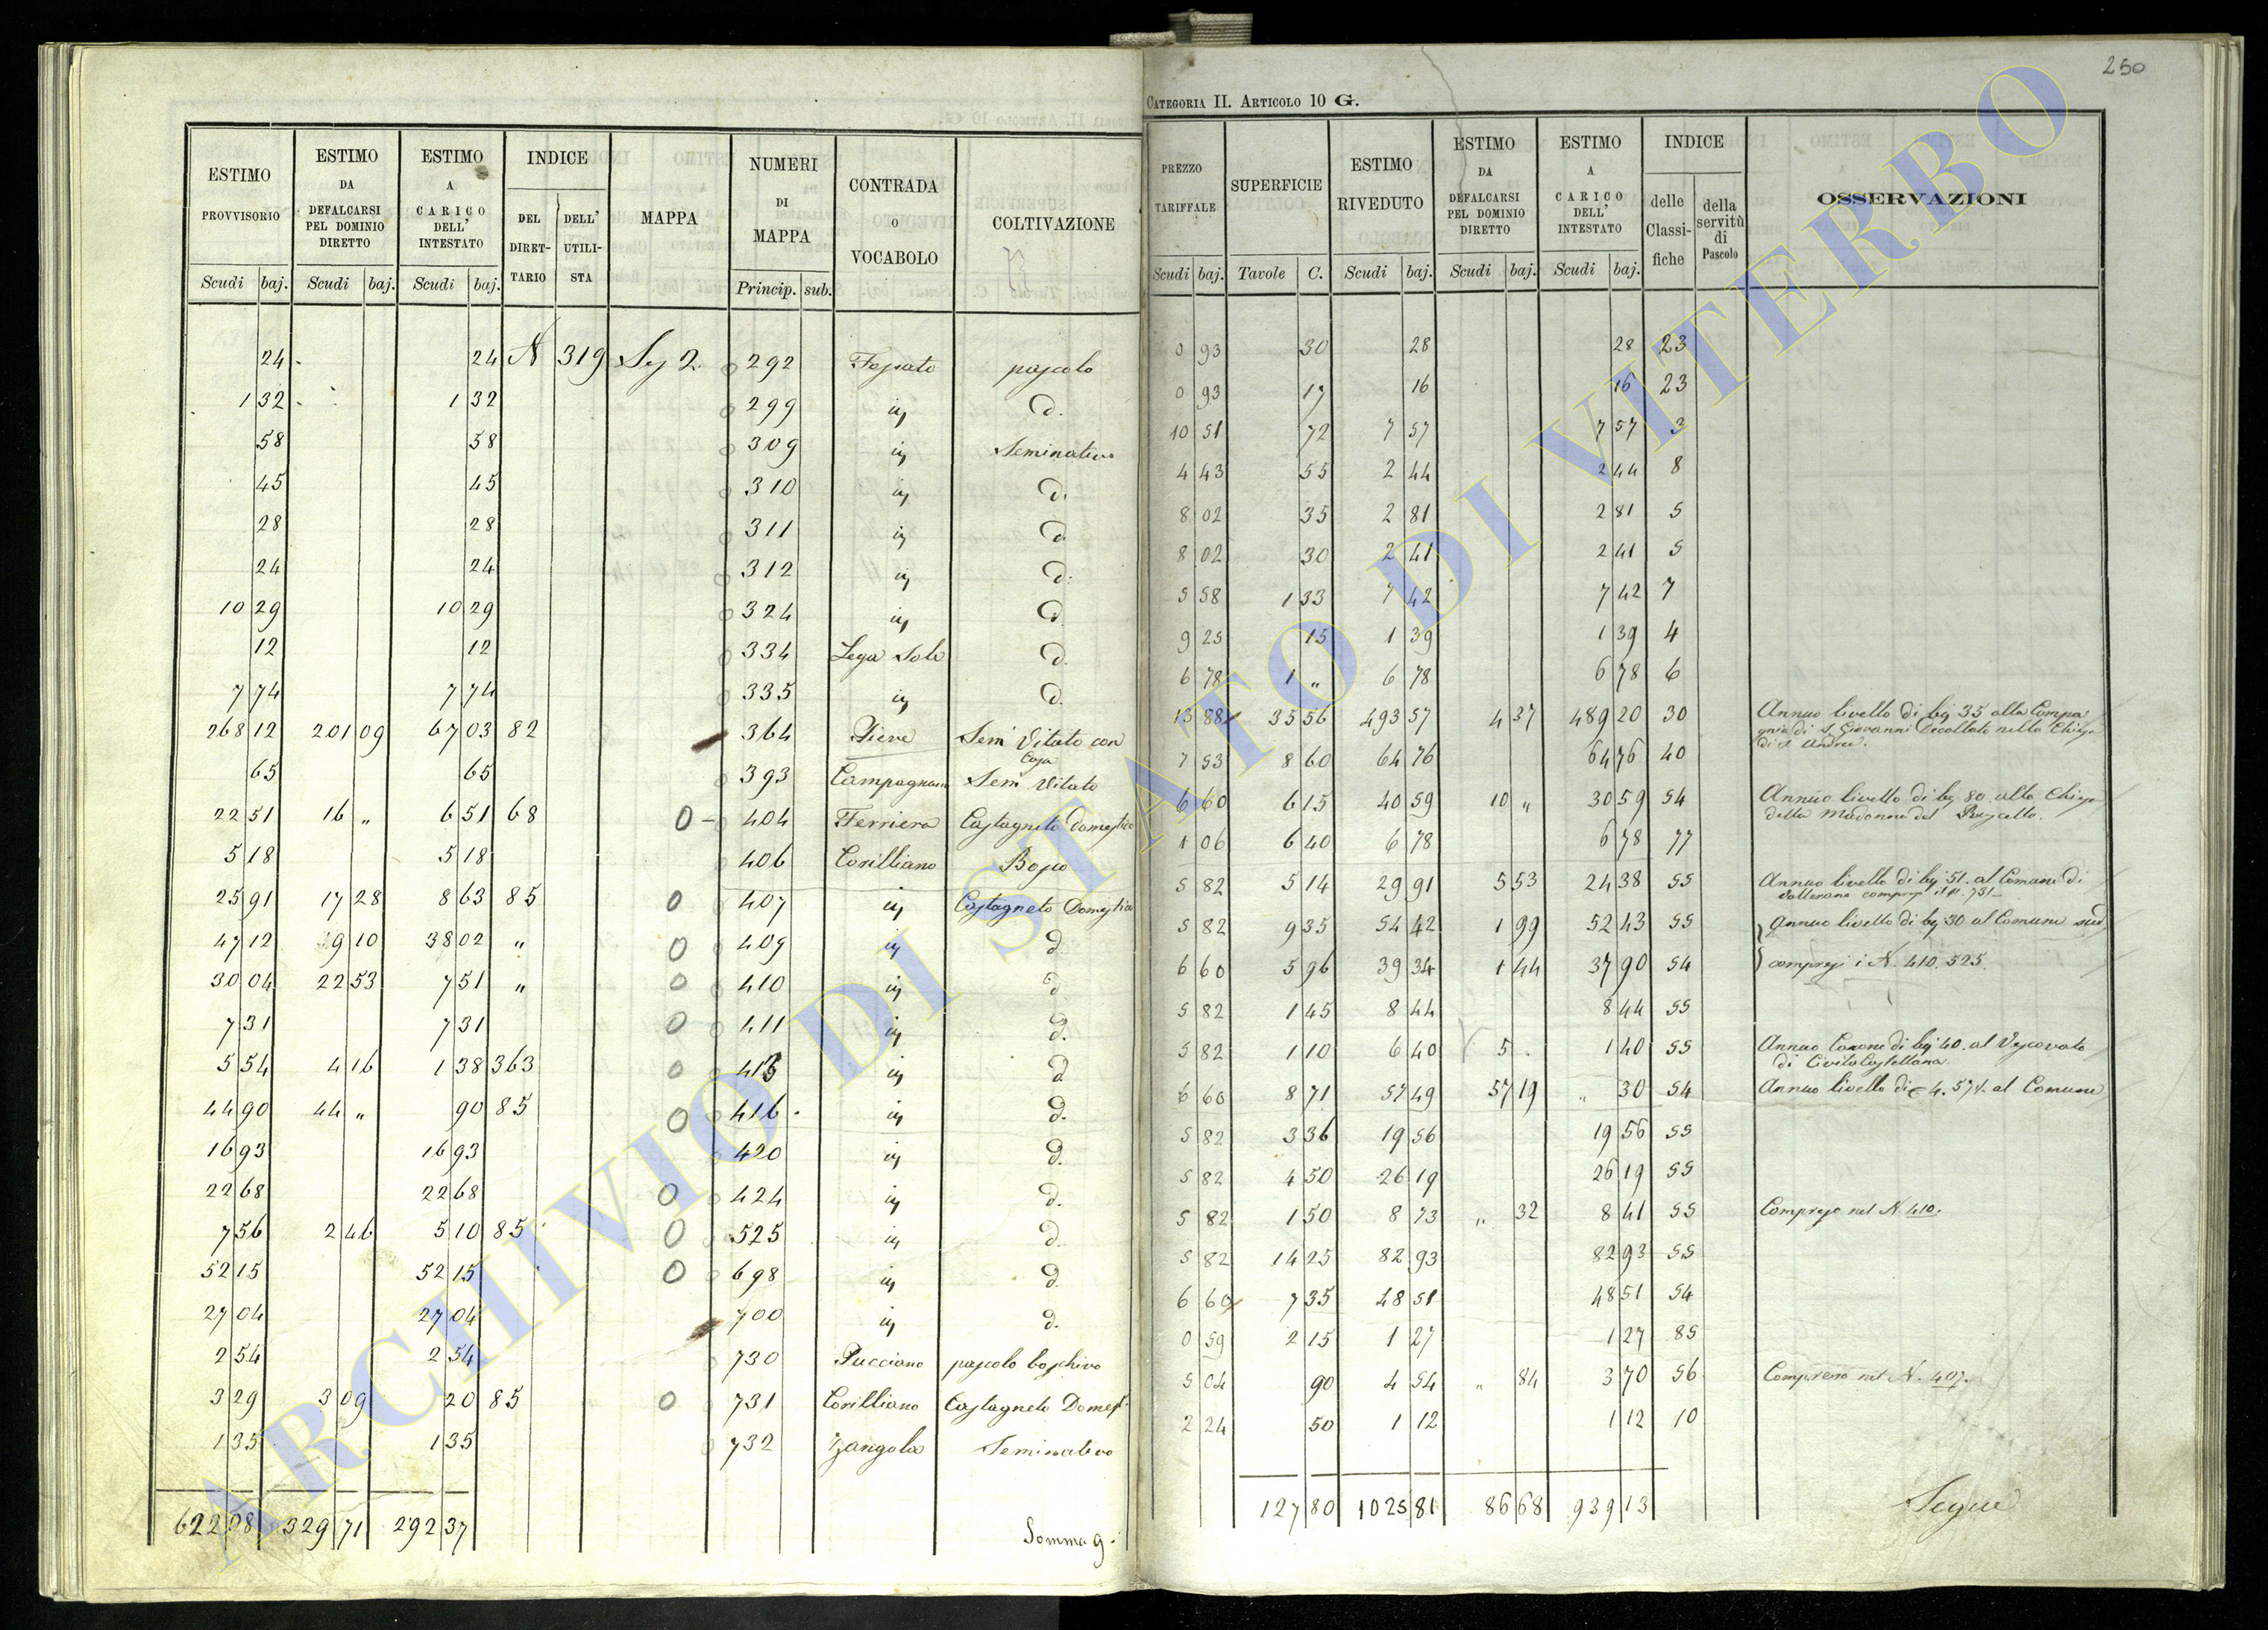 250
CATEGORIA II. ARTICOLO 10 G.
ESTIMO PROVVISORIO Scudi baj. ESTIMO DA DEFALCARSI PEL DOMINIO DIRETTO Scudi baj. ESTIMO A CARICO DELL' INTESTATO Scudi baj. INDICE DEL DIRETTARIO DELL' UTILISTA MAPPA NUMERI DI MAPPA Princip. sub. CONTRADA O VOCABOLO COLTIVAZIONE
24 24 N 319 292 pascolo
1 32 1 32 299 d.
58 58 309 Seminativo
45 45 310 d.
28 28 311 d.
24 24 312 d.
10 29 10 29 324 d.
12 12 334 Lega Sole d.
7 74 7 74 335 d.
268 12 201 09 67 03 82 364 Pieve Semi Vitato con Casa
65 65 393 Semi Vitato
22 51 16 „ 6 51 68 0 404 Ferriera Castagneto domestico
5 18 5 18 406 Corilliano Bosco
25 91 17 28 8 63 85 0 407 Castagneto Domestico
47 12 9 10 38 02 „ 0 409 d.
30 04 22 53 7 51 „ 0 410 d
7 31 7 31 0 411 d.
5 54 4 16 1 38 363 0 413 d
44 90 44 „ 90 85 0 416 d.
16 93 16 93 420 d.
22 68 22 68 0 424 d.
7 56 2 46 5 10 85 0 525 d.
52 15 52 15 0 698 d.
27 04 27 04 700 d.
2 54 2 54 730 Pucciano pascolo boschivo
3 29 3 09 20 85 0 731 Corilliano Castagneto Domest.
1 35 1 35 732 Zangola Seminativo
622 28 329 71 292 37 Somma g.
PREZZO TARIFFALE Scudi baj. SUPERFICIE Tavole C. ESTIMO RIVEDUTO Scudi baj. ESTIMO DA DEFALCARSI PEL DOMINIO DIRETTO Scudi baj. ESTIMO A CARICO DELL' INTESTATO Scudi baj. INDICE delle Classifiche della servitù di Pascolo OSSERVAZIONI
0 93 30 28 28 23
0 93 17 16 16 23
10 51 72 7 57 7 57 3
4 43 55 2 44 2 44 8
8 02 35 2 81 2 81 5
8 02 30 2 41 2 41 5
5 58 1 33 7 42 7 42 7
9 25 15 1 39 1 39 4
6 78 1 „ 6 78 6 78 6
13 88 35 56 493 57 4 37 489 20 30 Annuo livello di bj 35 alla Compa
gnia di S Giovanni Decollato nella Chiesa
di S Andrea.
7 53 8 60 64 76 64 76 40
6 60 6 15 40 59 10 „ 30 59 54 Annuo livello di bj 80. alla Chiesa
della Madonna del Ruscello.
1 06 6 40 6 78 6 78 77
5 82 5 14 29 91 5 53 24 38 55 Annuo livello di bj 51. al Comune di
Vallerano compreso il N. 731
5 82 9 35 54 42 1 99 52 43 55 Annuo livello di bj 30 al Comune sud
6 60 5 96 39 34 1 44 37 90 54 compresi i N. 410. 525.
5 82 1 45 8 44 8 44 55
5 82 1 10 6 40 5 . 1 40 55 Annuo Canone di bj 40. al Vescovato
di Civita Castellana.
6 60 8 71 57 49 57 19 „ 30 54 Annuo livello di 4. 57½. al Comune
5 82 3 36 19 56 19 56 55
5 82 4 50 26 19 26 19 55
5 82 1 50 8 73 „ 32 8 41 55 Compreso nel N. 410.
5 82 14 25 82 93 82 93 55
6 60 7 35 48 51 48 51 54
0 59 2 15 1 27 1 27 85
5 04 90 4 54 „ 84 3 70 56 Compreso nel N. 407.
2 24 50 1 12 1 12 10
127 80 1025 81 86 68 939 13 Segue
ARCHIVIO DI STATO DI VITERBO